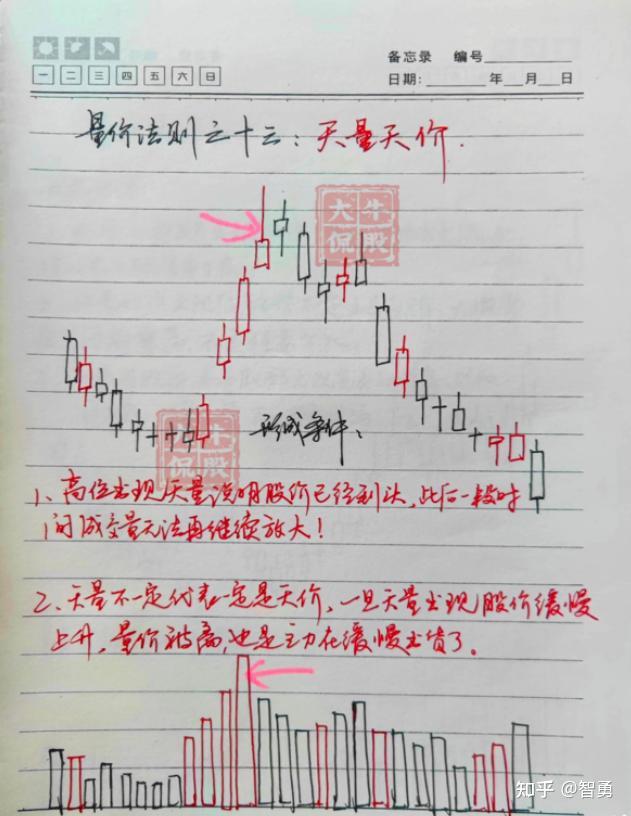 备忘录 编号
一 二 三 四 五 六 日
日期: 年 月 日
量价法则之十三：天量天价.
大牛
侃股
大牛
侃股
形成条件：
1、高位出现天量说明股价已经到头,此后一段时
间成交量无法再继续放大！
2、天量不一定代表一定是天价，一旦天量出现股价缓慢
上升,量价背离,也是主力在缓慢出货了。
知乎 @智勇